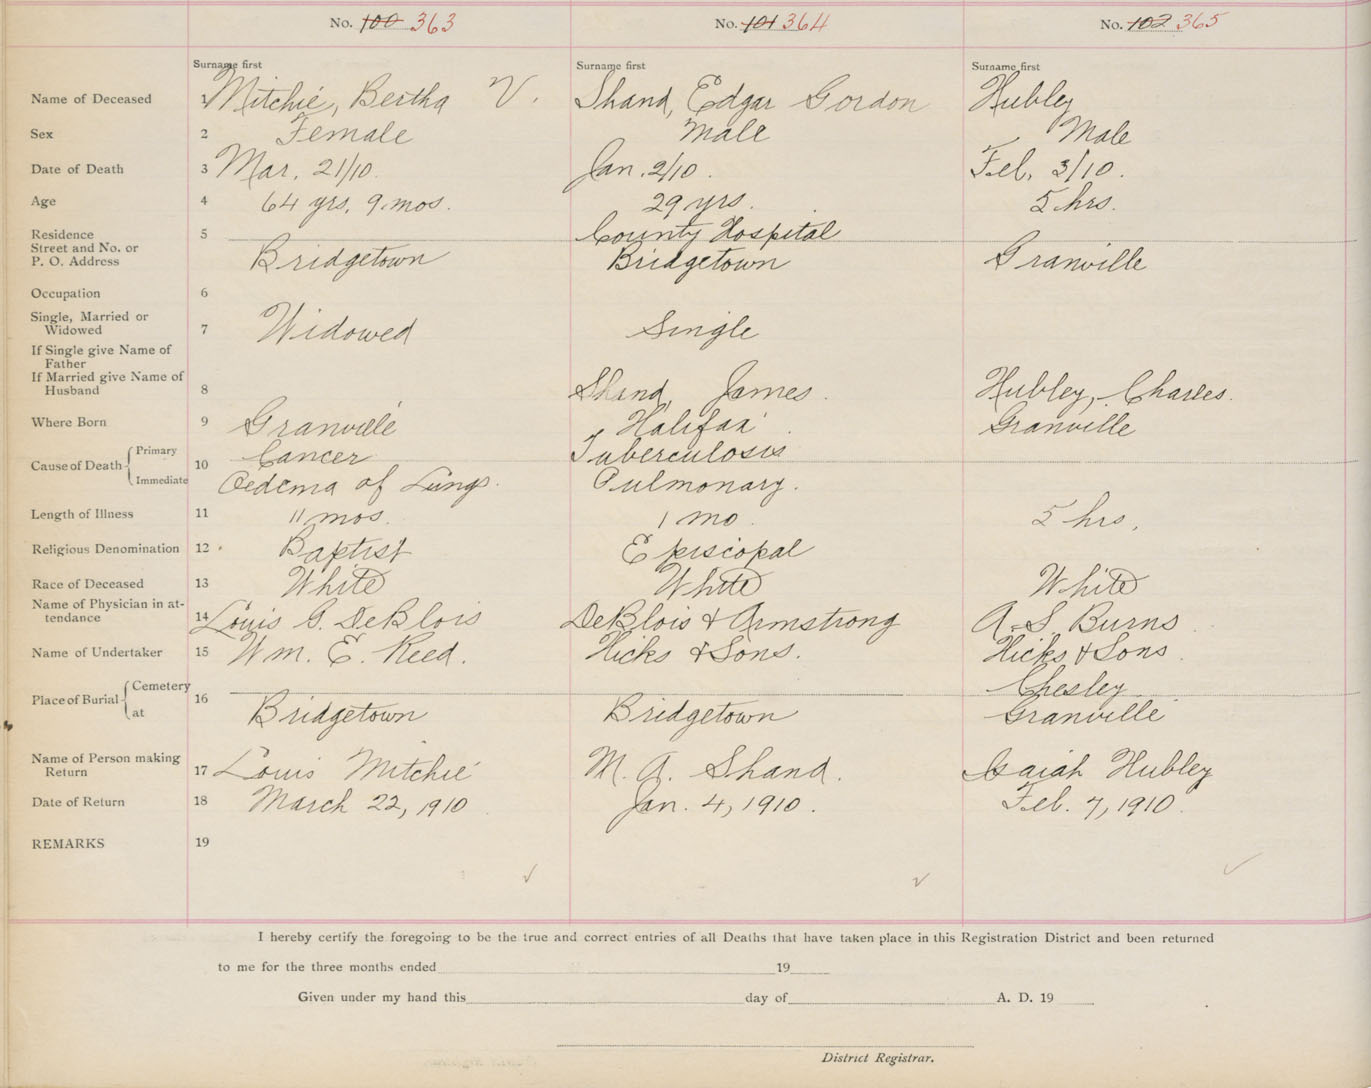 No. 100 363 No. 101 364 No. 102 365
Surname first Surname first Surname first
Name of Deceased 1 Mitchie, Bertha V. Shand, Edgar Gordon Hubley
Sex 2 Female Male Male
Date of Death 3 Mar. 21/10. Jan. 2/10. Feb. 3/10.
Age 4 64 yrs. 9 mos. 29 yrs. 5 hrs.
Residence 5 County Hospital
Street and No. or
P. O. Address Bridgetown Bridgetown Granville
Occupation 6
Single, Married or
Widowed 7 Widowed Single
If Single give Name of
Father
If Married give Name of
Husband 8 Shand, James. Hubley, Charles.
Where Born 9 Granville Halifax Granville
Cause of Death Primary 10 Cancer Tuberculosis
Immediate Oedema of Lungs. Pulmonary.
Length of Illness 11 11 mos. 1 mo. 5 hrs.
Religious Denomination 12 Baptist Episcopal
Race of Deceased 13 White White White
Name of Physician in at-
tendance 14 Louis G. DeBlois DeBlois & Armstrong A. S. Burns
Name of Undertaker 15 Wm. E. Reed. Hicks & Sons. Hicks & Sons.
Place of Burial Cemetery 16 Chesley
at Bridgetown Bridgetown Granville
Name of Person making
Return 17 Louis Mitchie M. A. Shand. Isaiah Hubley
Date of Return 18 March 22, 1910 Jan. 4, 1910. Feb. 7, 1910.
REMARKS 19
I hereby certify the foregoing to be the true and correct entries of all Deaths that have taken place in this Registration District and been returned
to me for the three months ended 19
Given under my hand this day of A. D. 19
District Registrar.